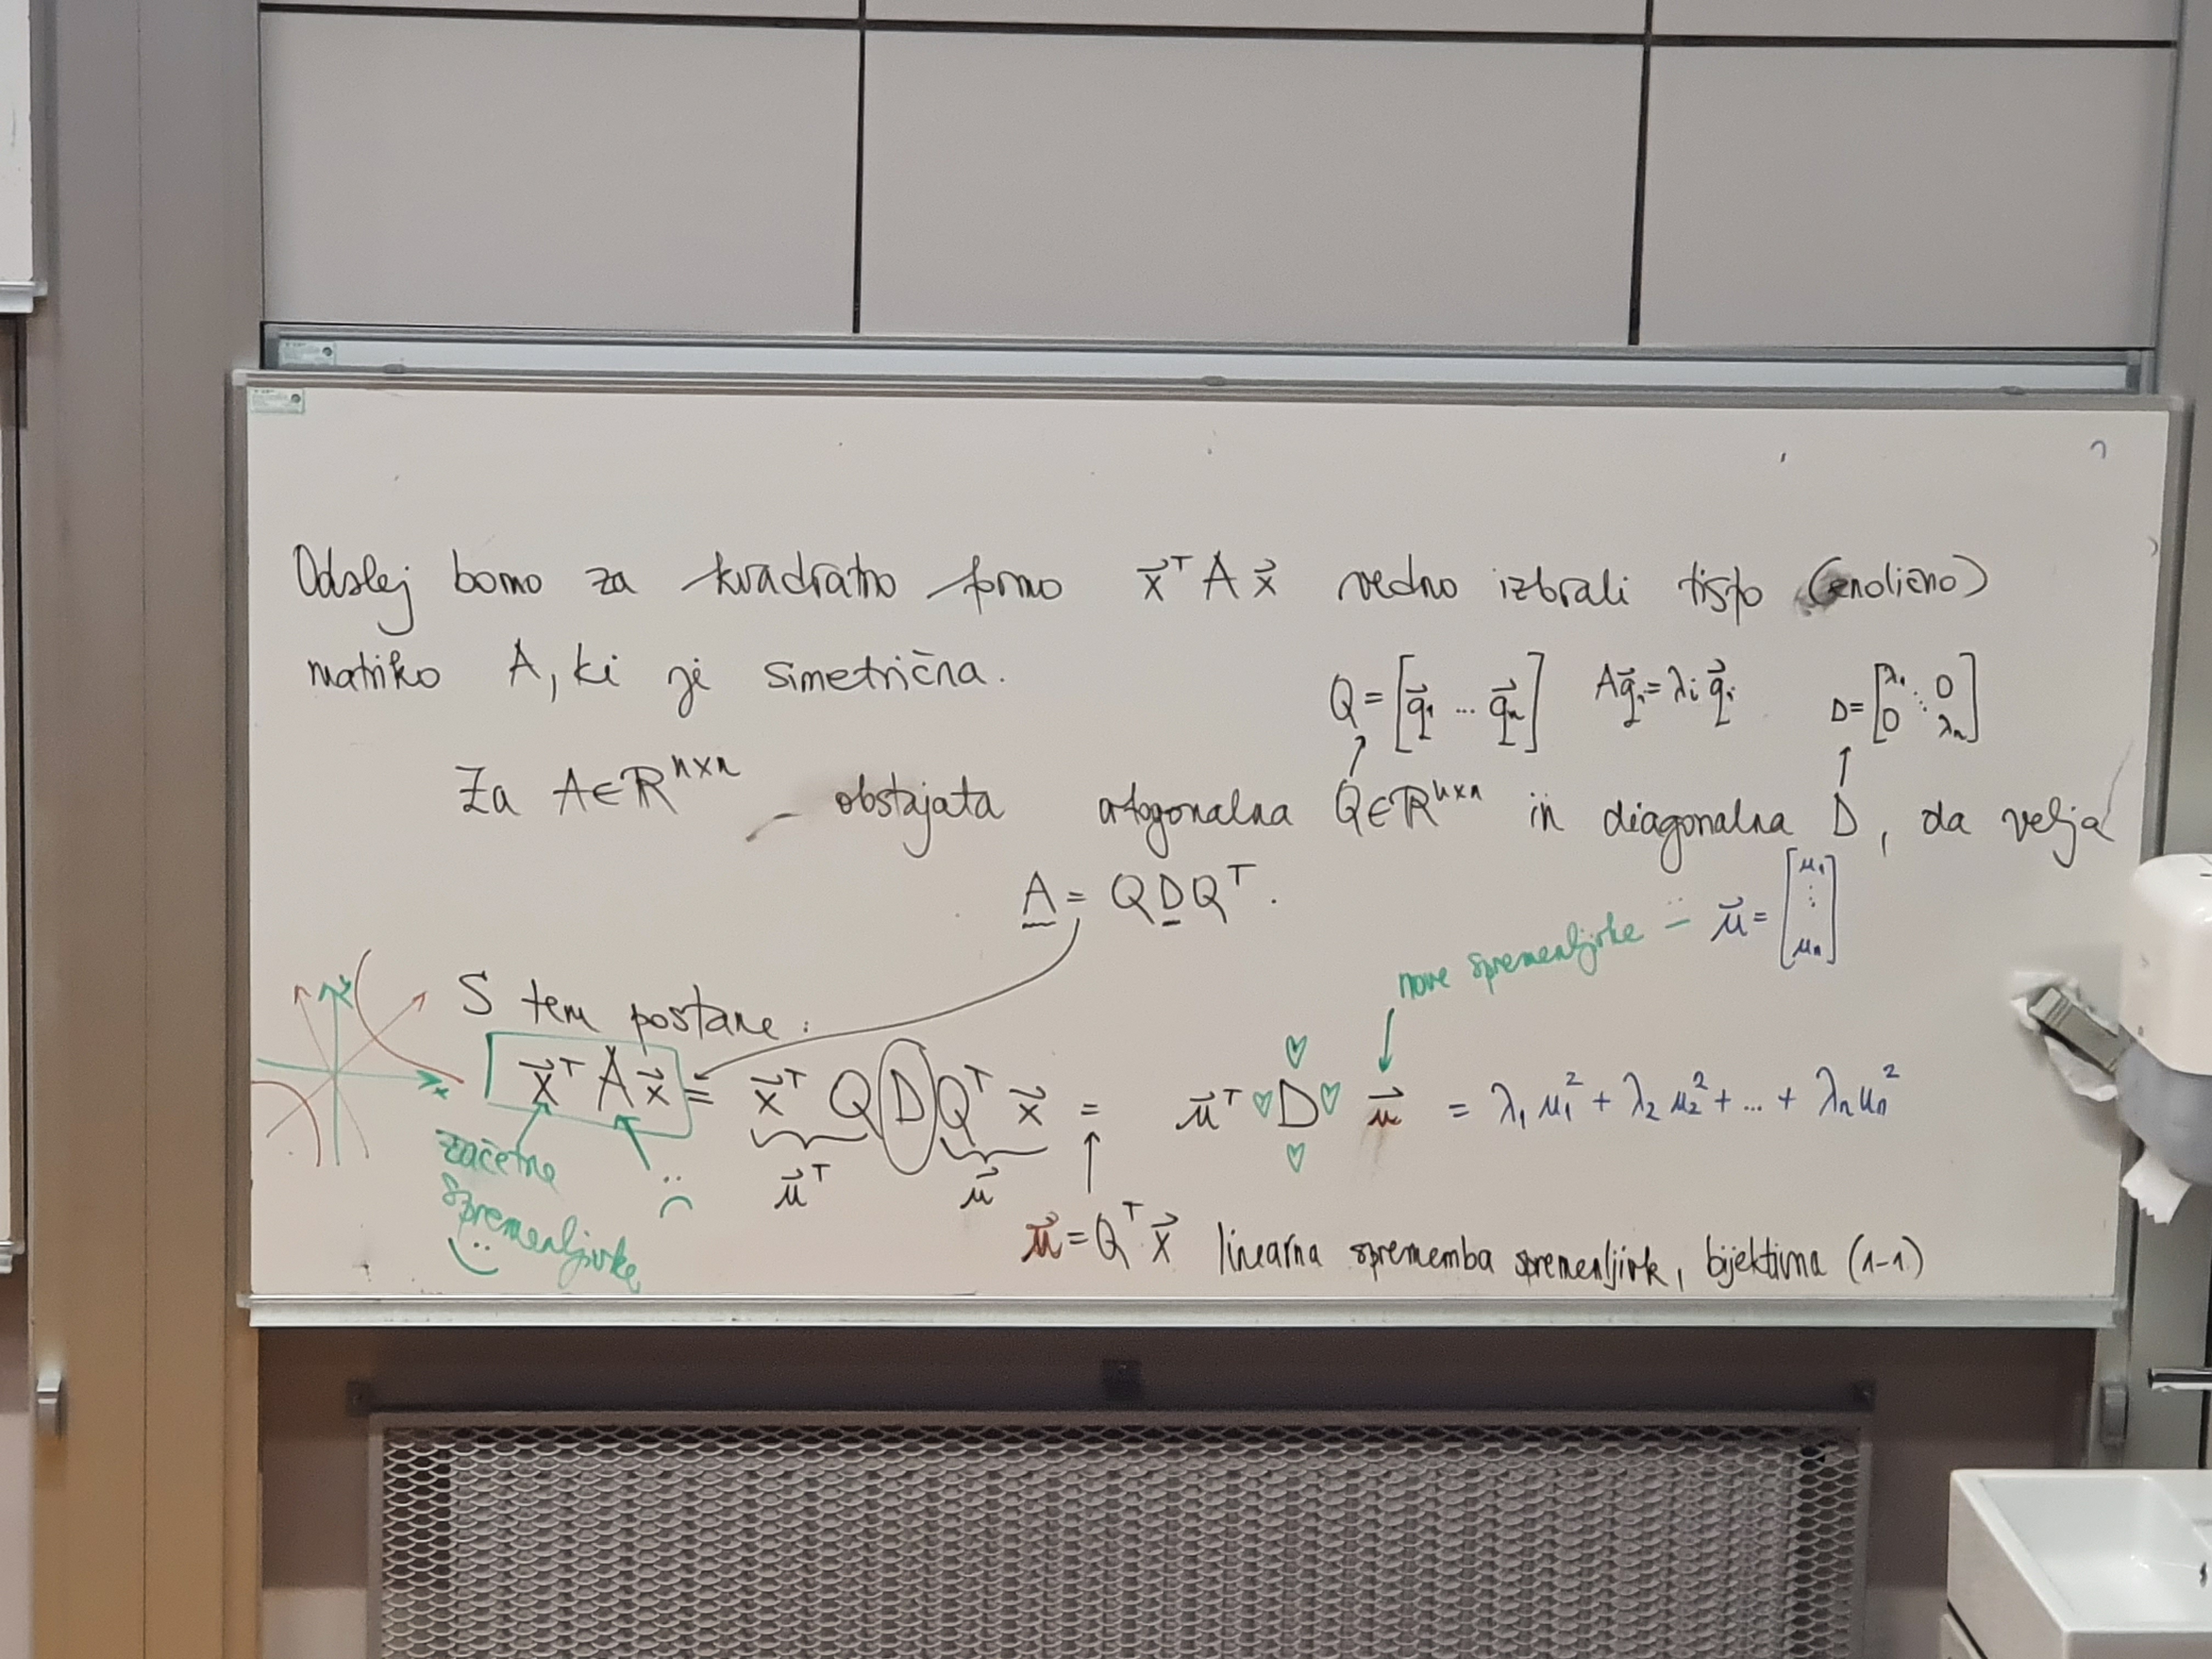 Odslej bomo za kvadratno formo x⃗ᵀ A x⃗ vedno izbrali tisto (enolično)
matriko A, ki je simetrična.
Q = [q⃗₁ ... q⃗ₙ] Aq⃗ᵢ = λᵢ q⃗ᵢ D = [λ₁ ⋱ 0 0 λₙ]
Za A ∈ ℝⁿˣⁿ obstajata ortogonalna Q ∈ ℝⁿˣⁿ in diagonalna D, da velja
A = QDQᵀ.
nove spremenljivke u⃗ = [u₁ ⋮ uₙ]
S tem postane:
x⃗ᵀ A x⃗ = x⃗ᵀ Q D Qᵀ x⃗ = u⃗ᵀ ♡ D ♡ u⃗ = λ₁ u₁² + λ₂ u₂² + ... + λₙ uₙ²
u⃗ᵀ u⃗
začetne
spremenljivke
u⃗ = Qᵀ x⃗ linearna sprememba spremenljivk, bijektivna (1-1)